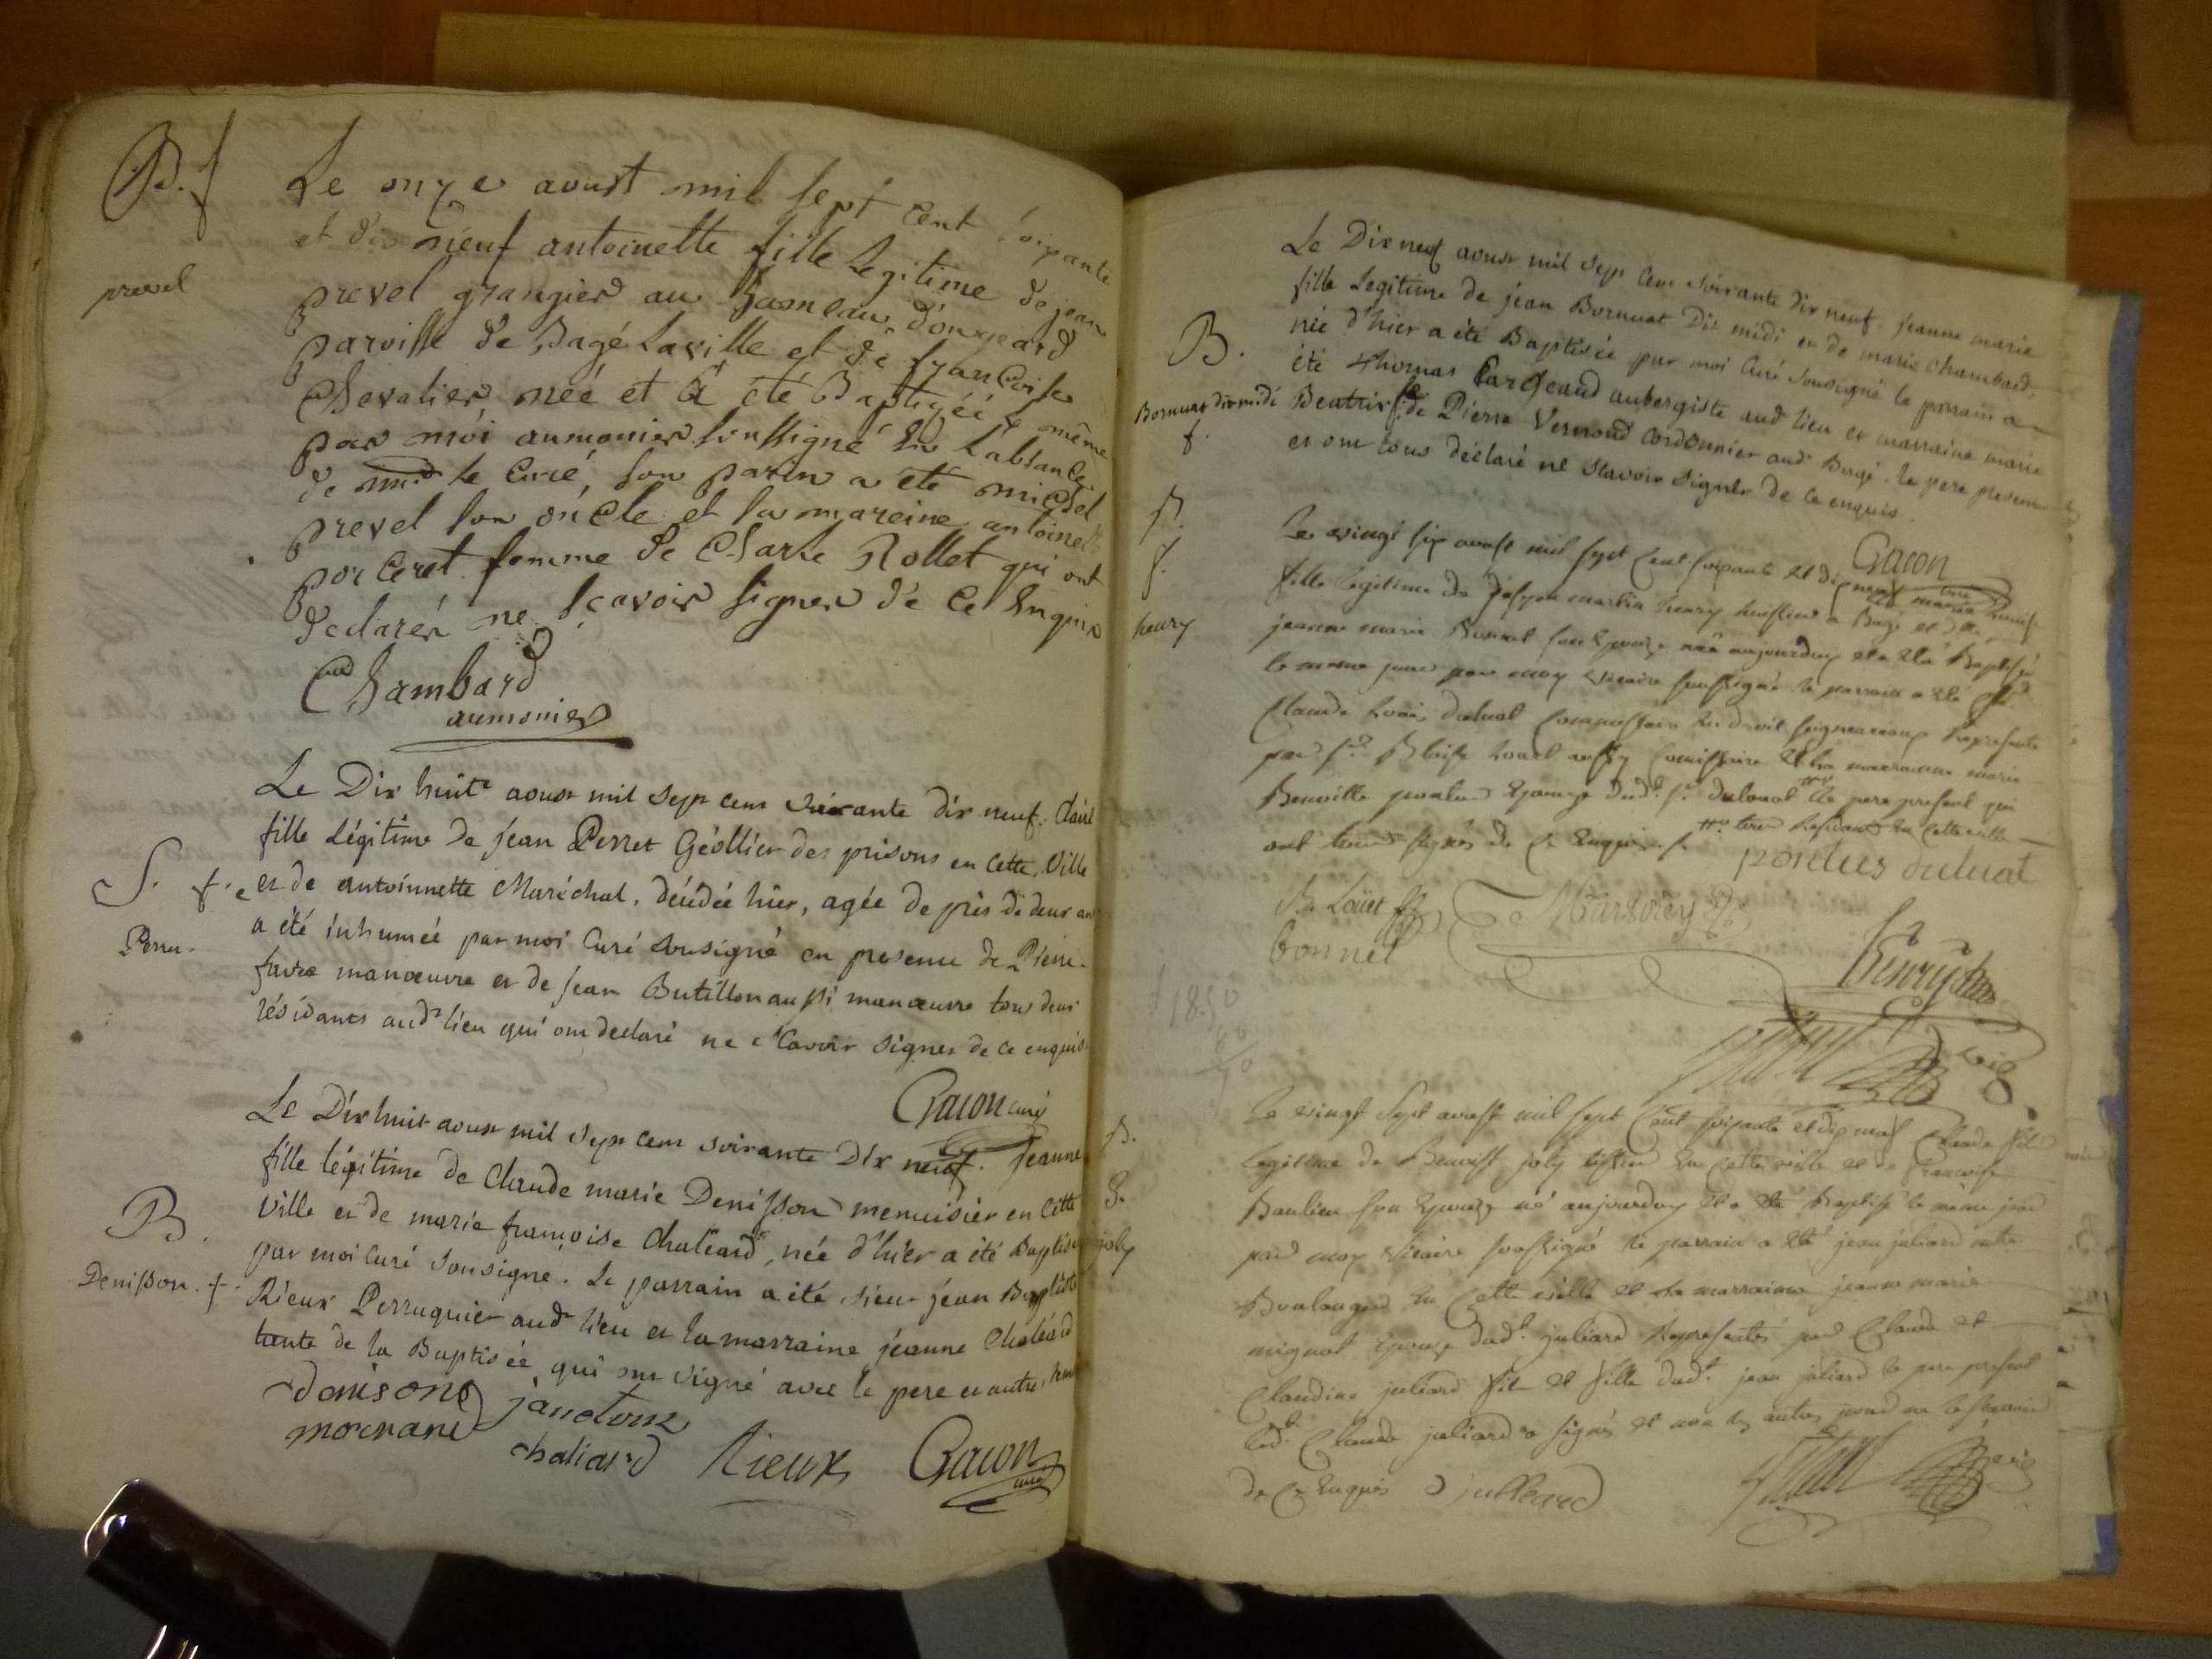 B. f
prevel
Le onze aoust mil sept cent soixante
et dix neuf antoinette fille Legitime de jean
prevel grangier au hameau d'ongeard
paroisse de Bagé Laville et de françoise
Chevalier néé et à été Baptizéé le même
par moi aumonier soussigné En L'absance
de le Curé, son parin a été michel
prevel son oncle et sa mareine antoinette
porceret femme de Charle Rollet qui ont
declarér ne sçavoir signer de ce Enquis
Chambard
aumonier
S. f.
Perret
Le Dix huite aoust mil sept cent soixante dix neuf. Claire
fille Légitime de jean Perret Géollier des prisons en cette Ville
et de antoinnette Maréchal, décédée hier, agée de près de deux ans
a été inhumeé par moi Curé sousigné en presence de Pierre
favre manœuvre et de jean Butillon aussi manœuvre tous deux
résidants audt lieu qui ont declaré ne sçavoir signer de ce enquis
Gacon curé
B.
Denisson. f.
Le Dix huit aoust mil sept cent soixante Dix neuf. Jeanne
fille légitime de Claude marie Denisson menuisier en Cette
Ville et de marie françoise Chaliard, née d'hier a été Baptisée
par moi Curé sousigné. Le parrain a été sieur jéan Baptiste
Rieux Perruquier audt lieu et la marraine jéanne Chaliard
tante de la Baptisée qui ont signé avec le pere et autres
denisone
janeton
chaliard Rieux Gacon
curé
B.
Bornuat dix midi
f.
Le Dix neuf aoust mil sept cent soixante dix neuf. jeanne marie
fille Legitime de jéan Bornuat Dix midi et de marie Chambard,
née d'hier a été Baptisée par moi Curé sousigné le parrain a
été thomas audt lieu et marraine marie
Beatrix fe de Pierre Vernoud Cordonnier audt Bagé. le pere present
et ont tous déclaré ne sçavoir signer de ce enquis
Gacon
curé
B.
f.
henry
Le vingt six aoust mil sept cent soixante et dix neuf marie
fille legitime de martin henry huissier a Bagé et de
jeanne marie Bonnet son Epouze née aujourdhuy et a été Baptisée
le meme jour par moy vicaire soussigné le parrain a été sr
Claude Louis dulual Commissaire En droit seigneuriaux Represente
par sr. Blaise Louet aussy Commissaire et la marraine marie
Epouze dudt. sr. dulual le pere present qui
ont tous signés de ce Enquis.
pontus dulual
B. Loüet
bonnet
henry
vic
B.
G.
joly
Le vingt sept aoust mil sept cent soixante et dix neuf Claude fils
legitime de Benoist joly tissier En Cette ville et de françoise
Baulieu son Epouze né aujourdhuy et a été Baptisé le meme jour
par moy vicaire soussigné le parrain a été jean juliard mtre
Boulanger En Cette ville et la marraine jeanne marie
mignot Epouze dudt. juliard Representés par Claude et
Claudine juliard fils et fille dudt. jean juliard le pere present
ledt. Claude juliard a signé et non les autres pour ne le scavoir
de ce Enquis julleard
vic